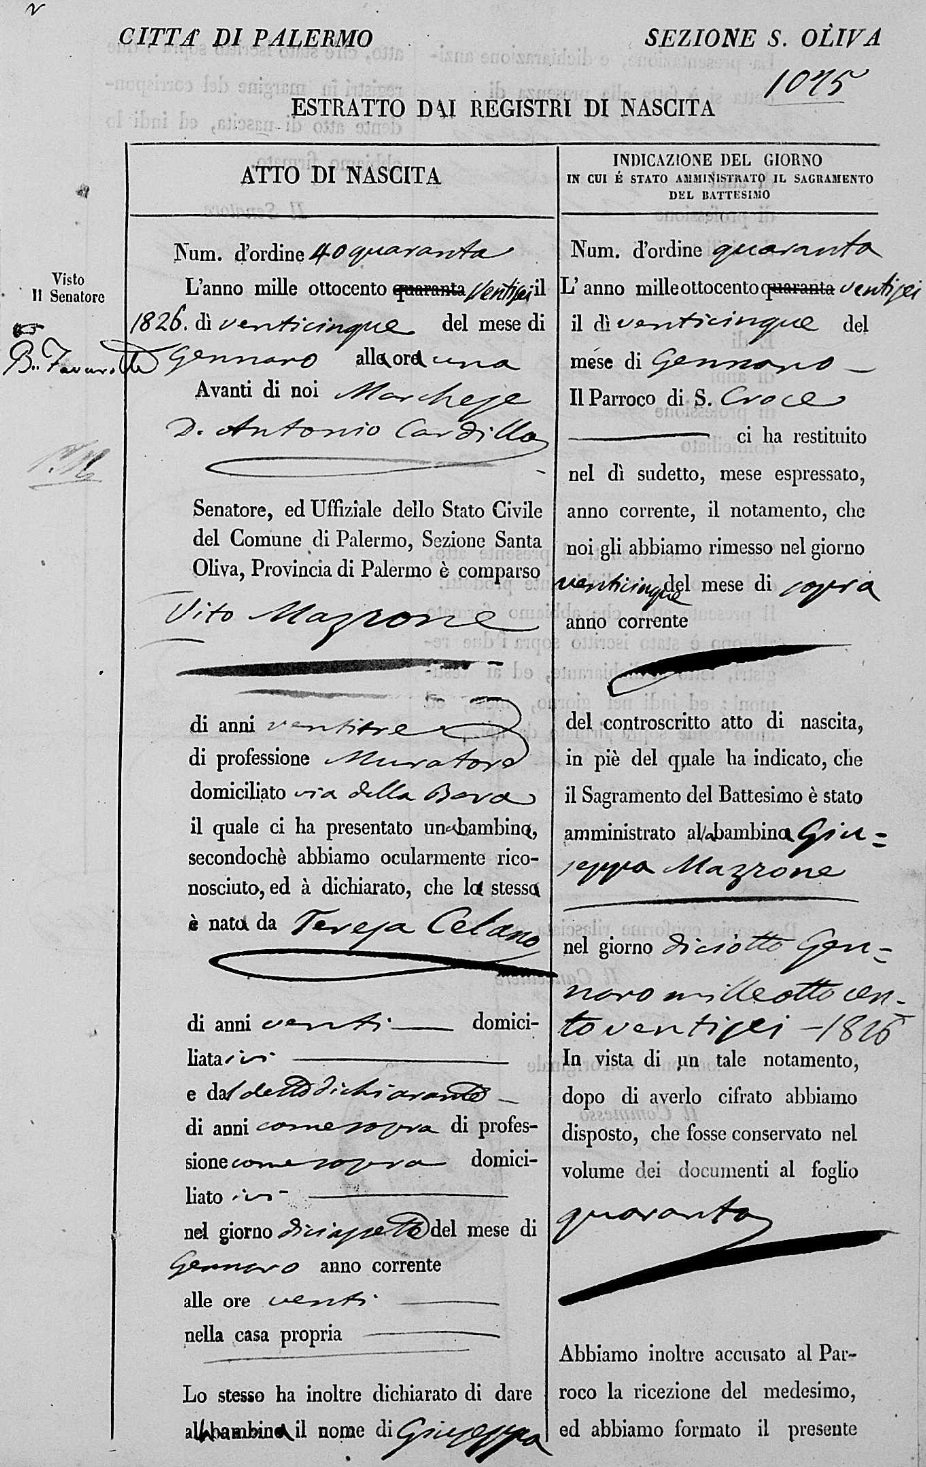 CITTÀ DI PALERMO
SEZIONE S. OLIVA
1075
ESTRATTO DAI REGISTRI DI NASCITA
Visto
Il Senatore
ATTO DI NASCITA
Num. d'ordine 40 quaranta
L'anno mille ottocento quaranta ventisei il
1826. dì venticinque del mese di
Gennaro alle ore una
Avanti di noi Marchese
D. Antonio Cardillo
Senatore, ed Uffiziale dello Stato Civile
del Comune di Palermo, Sezione Santa
Oliva, Provincia di Palermo è comparso
Vito Mazzone
di anni ventitre
di professione Muratore
domiciliato via della Bara
il quale ci ha presentato una bambina,
secondochè abbiamo ocularmente rico-
nosciuto, ed à dichiarato, che la stessa
è nata da Teresa Celano
di anni venti domici-
liata ivi
e dal detto dichiarante
di anni come sopra di profes-
sione come sopra domici-
liato ivi
nel giorno diciasette del mese di
Gennaro anno corrente
alle ore venti
nella casa propria
Lo stesso ha inoltre dichiarato di dare
alla bambina il nome di Giuseppa
INDICAZIONE DEL GIORNO
IN CUI É STATO AMMINISTRATO IL SAGRAMENTO
DEL BATTESIMO
Num. d'ordine quaranta
L' anno mille ottocento quaranta ventisei
il dì venticinque del
mese di Gennaro
Il Parroco di S. Croce
ci ha restituito
nel dì sudetto, mese espressato,
anno corrente, il notamento, che
noi gli abbiamo rimesso nel giorno
venticinque del mese di sopra
anno corrente
del controscritto atto di nascita,
in piè del quale ha indicato, che
il Sagramento del Battesimo è stato
amministrato alla bambina Giu=
seppa Mazzone
nel giorno diciotto Gen=
naro mille otto cen-
to ventisei - 1826
In vista di un tale notamento,
dopo di averlo cifrato abbiamo
disposto, che fosse conservato nel
volume dei documenti al foglio
quaranta
Abbiamo inoltre accusato al Par-
roco la ricezione del medesimo,
ed abbiamo formato il presente